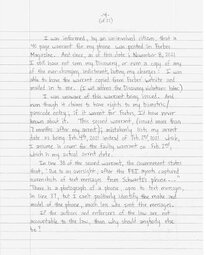 -4-
(of 21)
I was informed, by an uninvolved citizen, that a
40 page warrant for my phone was posted in Forbes
Magazine. And since, as of this date, November 8, 2021
I still have not seen my Discovery, or even a copy of any
of the ever-changing indictment, listing my charges; I was
able to have the warrant copied from Forbes' website and
mailed in to me. (I will address the Discovery violations below)
I was unaware of this warrant being issued. And
even though it claims to have rights to my biometric/
passcode entry; if it weren't for Forbes, I'd have never
known about it. This second warrant, (issued more than
7 months after my arrest), mistakenly lists my arrest
date as being Feb. 9th, 2021 instead of Feb. 2nd, 2021 which,
I assume is court for the faulty warrant on Feb. 2nd,
which is my actual arrest date.
In line 38 of the second warrant, the Government states
that, "Due to an oversight, after the FBI agents captured
screenshots of text messages from Schwartz's phone..."
There is a photograph of a phone, open to text messages,
in line 37, but I can't positively identify the make and
model of the phone, much less who sent the messages.
If the authors and enforcers of the law are not
accountable to the law, then why should anybody else
be?